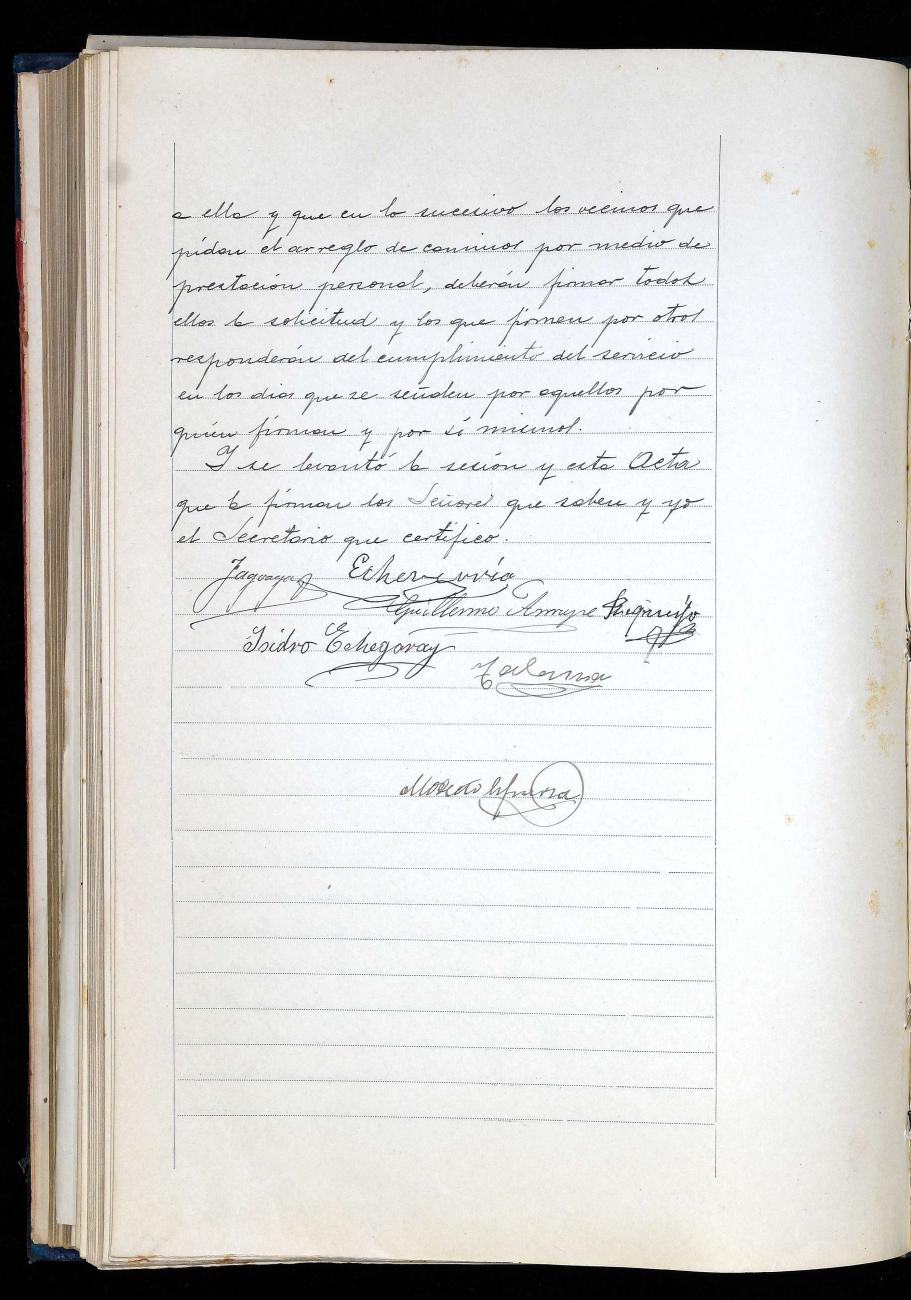 a ella y que en lo sucesivo los vecinos que
pidan el arreglo de caminos por medio de
prestación personal, deberán firmar todos
ellos la solicitud y los que firmen por otros
responderán del cumplimiento del servicio
en los dias que se señalen por aquellos por
quien firman y por sí mismos.
Y se levantó la sesión y esta Acta
que la firman los Señores que saben y yo
el Secretario que certifico.
Echeverría
Guillermo
Isidro Echegaray
Galarza